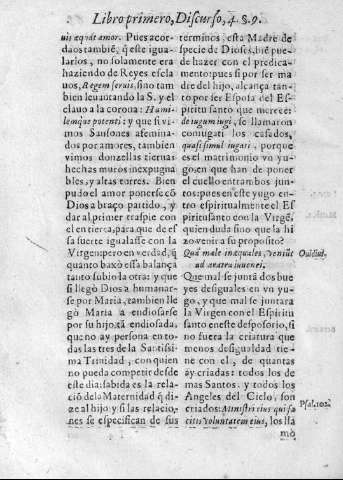 Libro primero, Discurso, 4. §. 9.
uis æquat amor. Pues acor-
daos tambiē, q̃ ese igua-
larlos, no solamente era
haziendo de Reyes escla
uos, Regem seruis, sino tam
bien leuantando la S. y el
clauo a la corona: Humi-
lemque potenti: y que si vi-
mos Sansones afemina-
dos por amores, tambien
vimos donzellas tiernas
hechas muros inexpugna
bles, y altas torres. Bien
pudo el amor ponerse cō
Dios a braço partido, y
dar al primer traspie con
el en tierra, para que de es
sa fuerte igualasse con la
Virgen: pero en verdad, q̃
quanto baxò esta balança
tanto subio la otra: y que
si llegò Dios a humanar-
se por Maria, tambien lle
gò Maria a endiosarse
por su hijo, tā endiosada,
que no ay persona en to-
das las tres de la Santissi-
ma Trinidad, con quien
no pueda competir desde
este dia: sabida es la rela-
ciō de la Maternidad q̃ di-
ze al hijo: y si las relacio-
nes se especifican de sus
terminos, esta Madre de
specie de Dioses, biē pue-
de hazer con el predica-
mento: pues si por ser ma
dre del hijo, alcança tan-
to por ser Esposa del Es-
piritu santo que merece:
de iugum iugi, se llamaron
coniugati los casados,
quasi simul iugari, porque
es el matrimonio vn yu-
go, en que han de poner
el cuello entrambos jun-
tos: pues en este yugo en-
tro espiritualmente el Es
piritu santo con la Virgē,
quien duda sino que la hi
zo venir a su proposito?
Quā male inæquales, veniūt
ad aratra iuuenci.
Ouidius,
Que mal se juntā dos bue
yes desiguales en vn yu-
go, y que mal se juntara
la Virgen con el Espiritu
santo en este desposorio, si
no fuera la criatura que
menos desigualdad tie-
ne con el, de quantas
ay criadas: todos los de
mas Santos, y todos los
Angeles del Cielo, son
criados: Ministri eius qui fa
citis voluntatem eius, los lla
Psal. 102.
mò